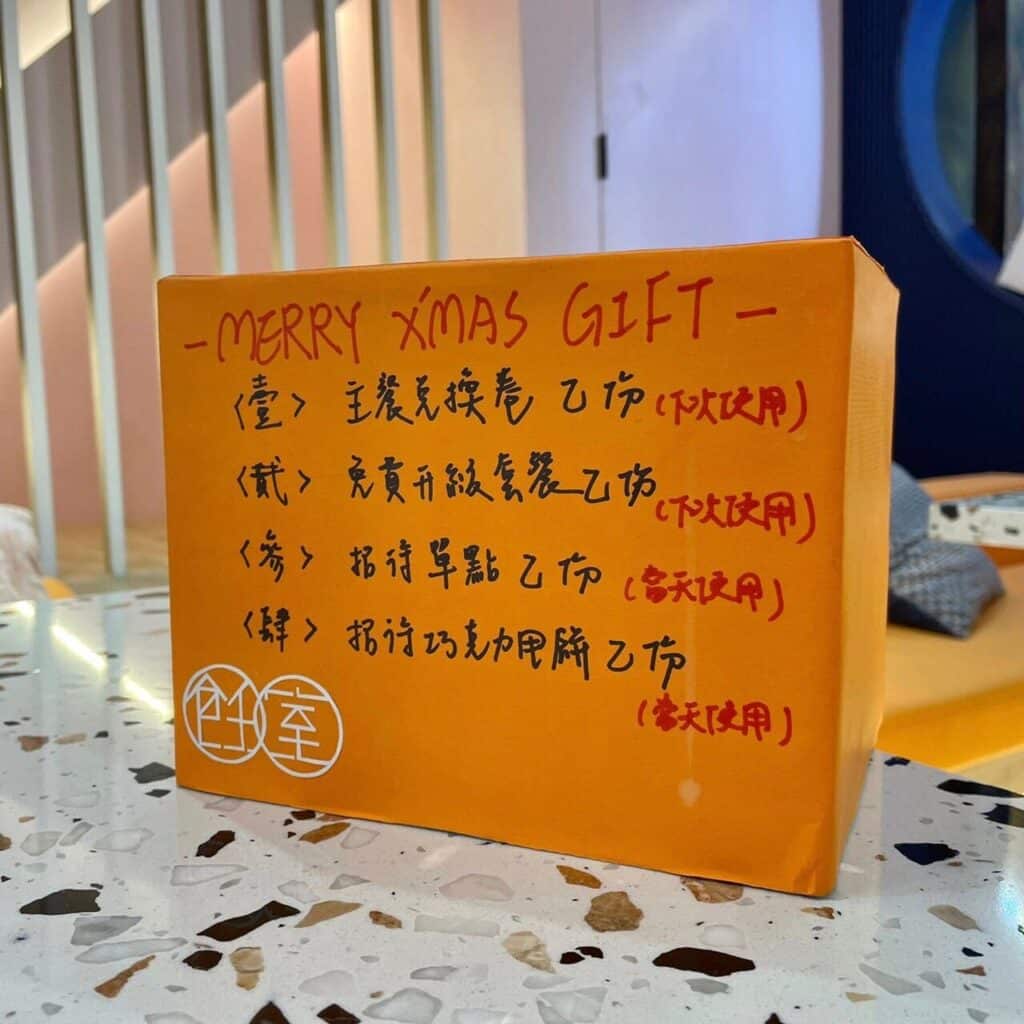 - MERRY X'MAS GIFT -
〈壹〉 主餐兌換卷 乙份 (下次使用)
〈貳〉 免費升級套餐乙份 (下次使用)
〈參〉 招待單點乙份 (當天使用)
〈肆〉 招待巧克力甩餅乙份 (當天使用)
創室